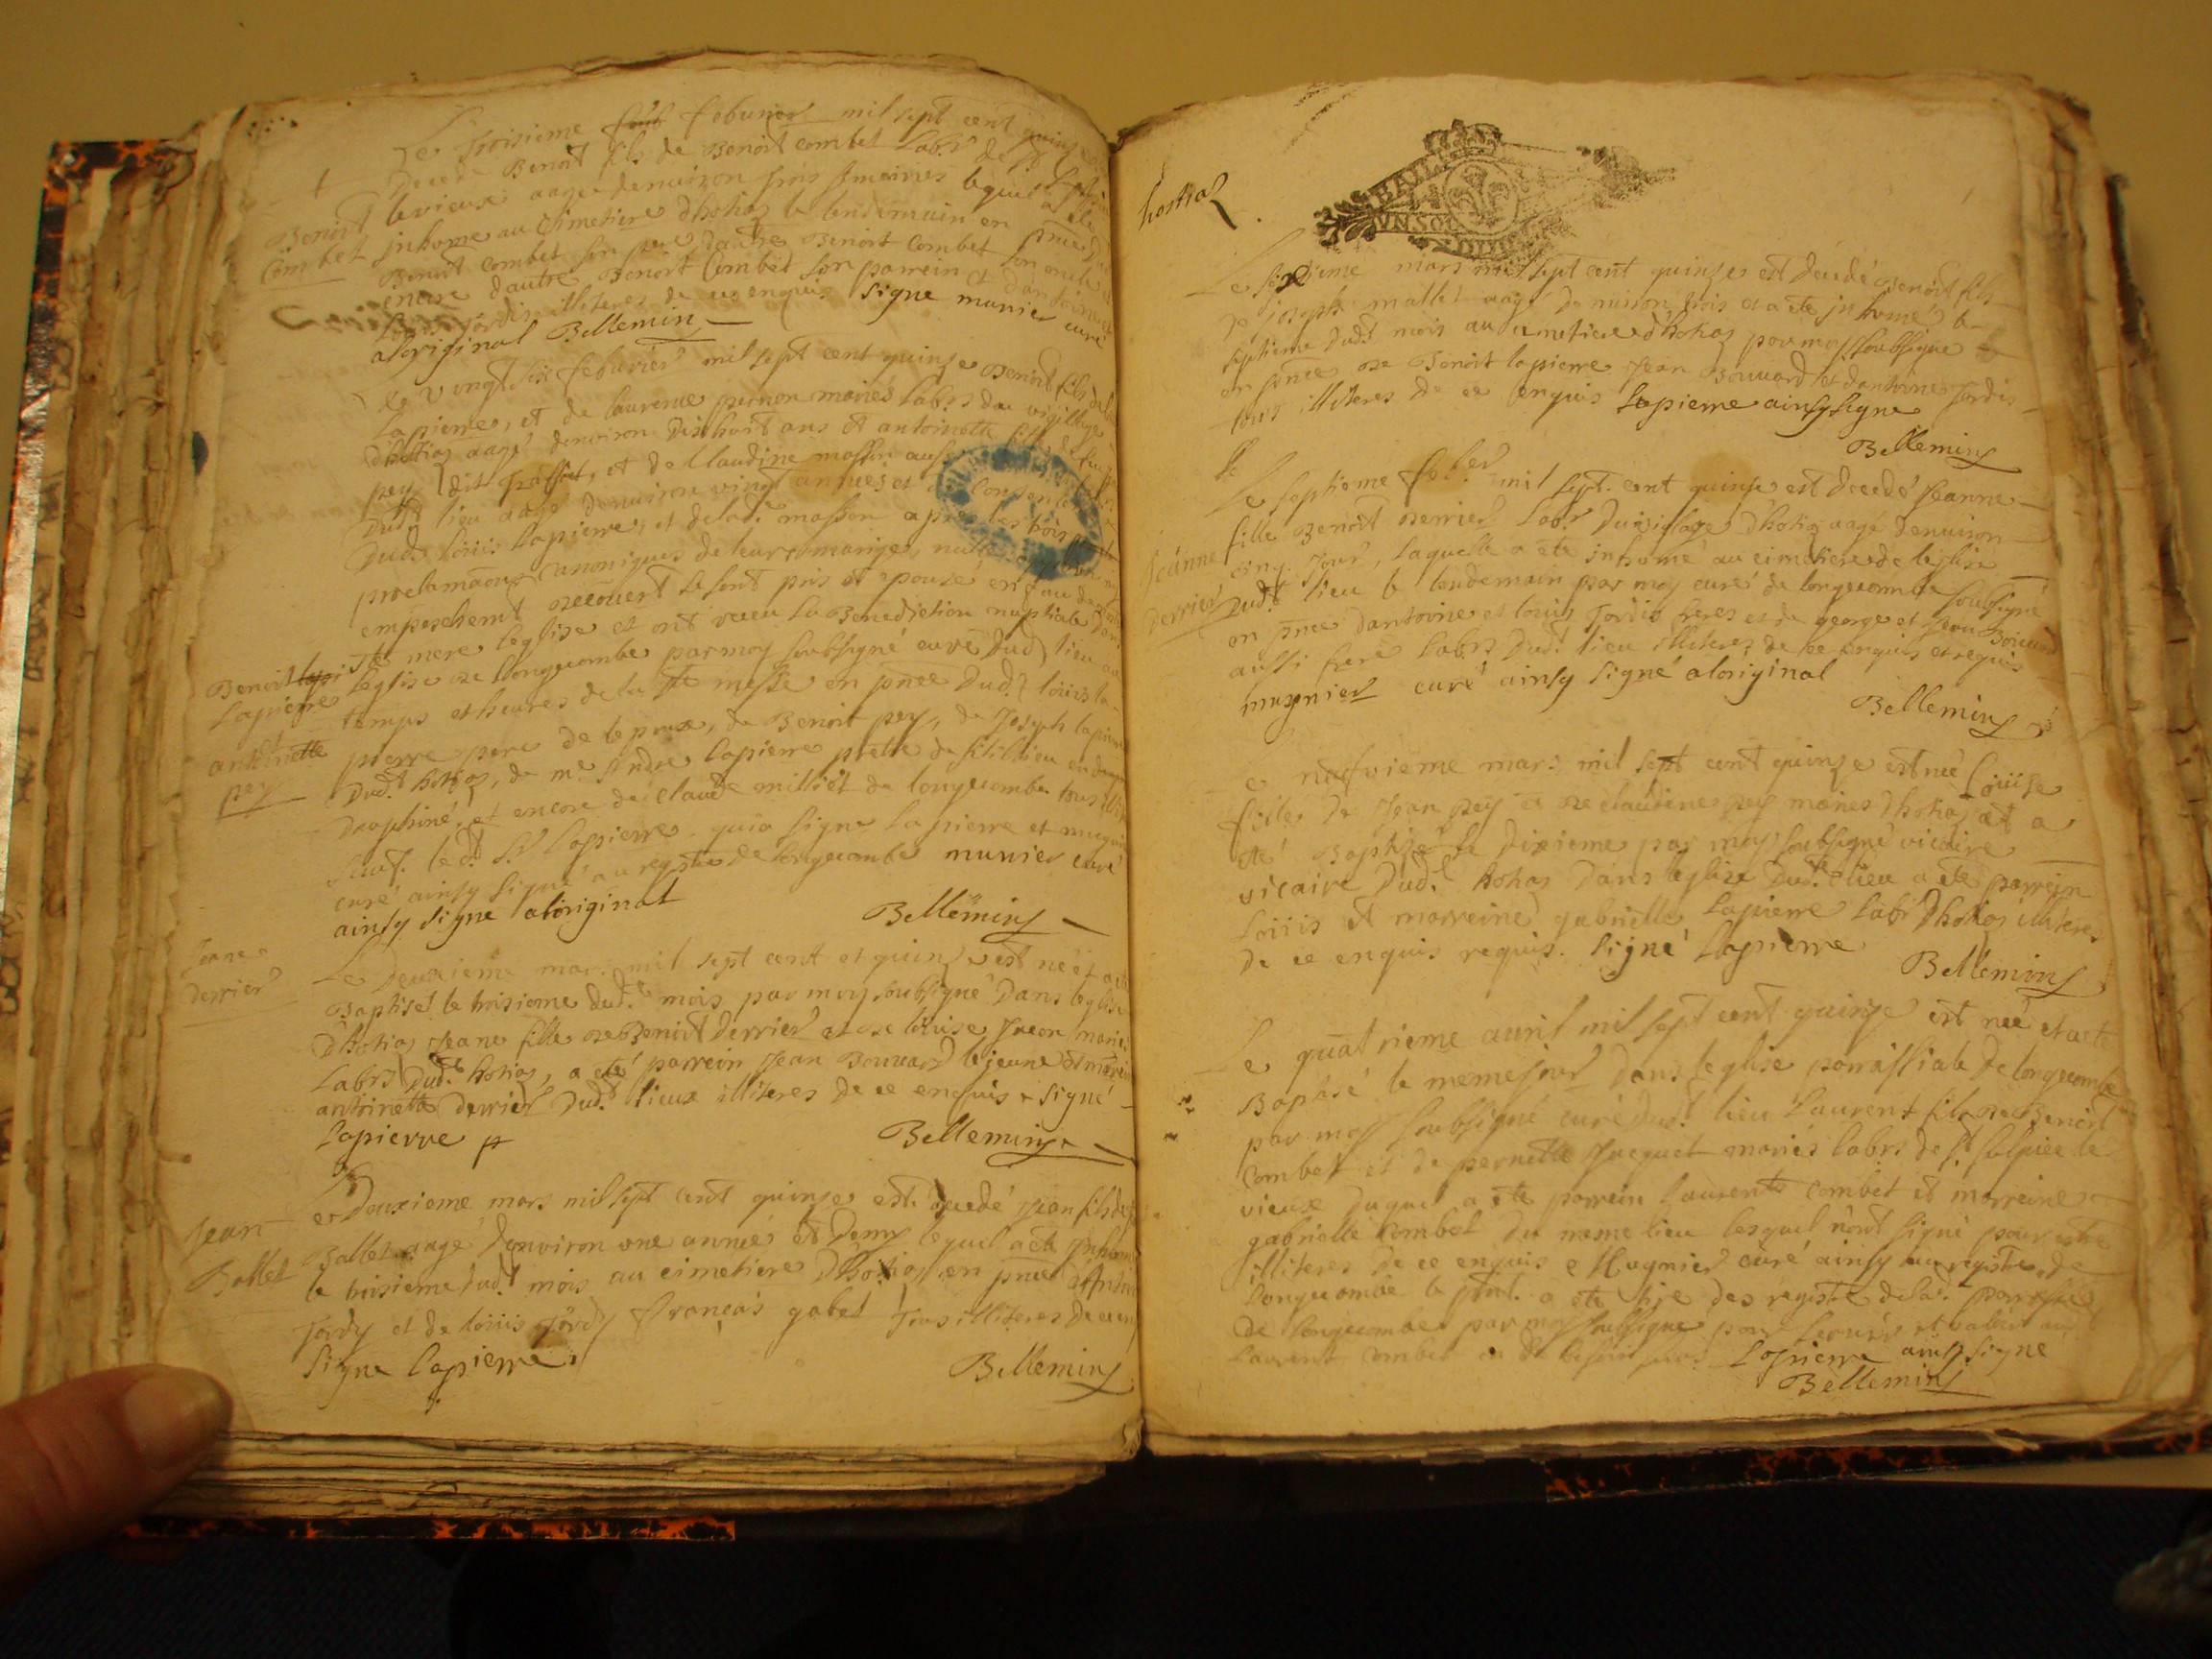 Le troisieme febvrier mil sept cent quinze
decede Benoit fils de Benoit combet Labr de St
Benoit
Combet
le vieux aagé denviron trois semaines lequel a ete
inhome au Cimetiere dhotias le lendemain en pnce
Benoit combet son pere dautre Benoit Combet son oncle
encore dautre Benoit Combet son parrein et dantoine
Jordis illiteres de ce enquis signe munier curé
aloriginal Bellemin
Le vingt six febvrier mil sept cent quinze Benoit fils de
Lapierre, et de laurence pernon mariés labrs du vigillage
dhotias aagé denviron dixhuit ans et antoinette fille de
pey dit et de Claudine masson aussi
dudt lieu aagé denviron vingt années et
dudt loüis Lapierre, et de lad masson apres les trois
proclamaõns canoniques de leur mariage, nulle
empeschemt decouert se sont pris et epouzé en
Ste mere leglise et ont receu la Benediction nuptiale dans
Benoit
Lapierre
antoinette
pey
leglise de longecombe par moy soubsigné curé dudt lieu au
temps et heures de la ste messe en pnce dudt loüis la
pierre pere de lepoux, de Benoit pey, de Joseph lapierre
dudt hotias, de me Andre lapierre pretre
dauphiné, et encore de Claude milliet de longecombe tous
sauf led Sr Lapierre qui a signe Lapierre et mugnier
curé ainsy signé au registre de longecombe munier curé
ainsy signe aloriginal
Bellemin
Jeane
derrier
Le deuxieme mars mil sept cent et quinze est neé et a ete
Baptisé le troisieme dudt mois par moy soubsigné dans leglise
dhotias Jeane fille de Benoit derrier et de loüise Jucon mariés
Labrs dudt hotias, a eté parrein Jean Bouvard le jeune et
antoinette derrier dudt lieux illiteres de ce enquis signé
Lapierre
Bellemin
Jean
Ballet
Le deuxieme mars mil sept cent quinze est decedé Jean fils de
Ballet aagé denviron une année et demy lequel a ete inhomé
le troisieme dudt mois au cimetiere dhotias en pnce dAntoine
Jordy et de loüis Jordy francois gabet tous illiteres de ce enq
signe Lapierre
Bellemin
hostiaz
UN SOL
Le sixieme mars mil sept cent quinze est decedé Benoit fils
de joseph mallet aagé denviron trois et a ete inhomé le
septieme dudt mois au cimetiere dhotias par moy soubsigné
en pnce de Benoit lapierre Jean Bouvard et dantoine Jordis
tous illiteres de ce enquis Lapierre ainsy signe
Bellemin
Le septieme mil sept cent quinze est decedé Jeanne
Jeanne
derrier
fille Benoit derrier Labr du vigilage dhotias aagé denviron
cinq jour, laquelle a ete inhomé au cimetiere de leglise
dudt lieu le lendemain par moy curé de longecombe soubsigné
en pnce dantoine et loüis Jordis freres et de george et Jean Bouvard
aussi frere labrs dudt lieu illiteres de ce enquis et requis
mugnier curé ainsy signé aloriginal
Bellemin
Le neufvieme mars mil sept cent quinze est neé Loüise
fille de Jean pey et de claudine pey mariés dhotias et a
eté Baptisé le dixieme par moy soubsigné vicaire
vicaire dudt hotias dans leglise dudt lieu a ete parrein
Loüis et marreine gabrielle Lapierre labr dhotias illiteres
de ce enquis requis. signé Lapierre
Bellemin
Le quatrieme avril mil sept cent quinze est neé et a ete
Baptisé le meme jour dans leglise parroissiale de longecombe
par moy soubsigné curé dudt lieu Laurent fils de Benoit
Combet et de pernette Jacquet mariés labrs de st sulpice le
vieux duquel a ete parrein Laurent combet et marreine
gabrielle Combet du meme lieu lesquel nont signé pour estre
illiteres de ce enquis Mugnier curé ainsy au registre de
longecombe le pnt a ete tire des registre delad parroisse
de longecombe par moy soubsigné pour servir et valoir aud
Laurent Combet Lapierre ainsy signe
Bellemin